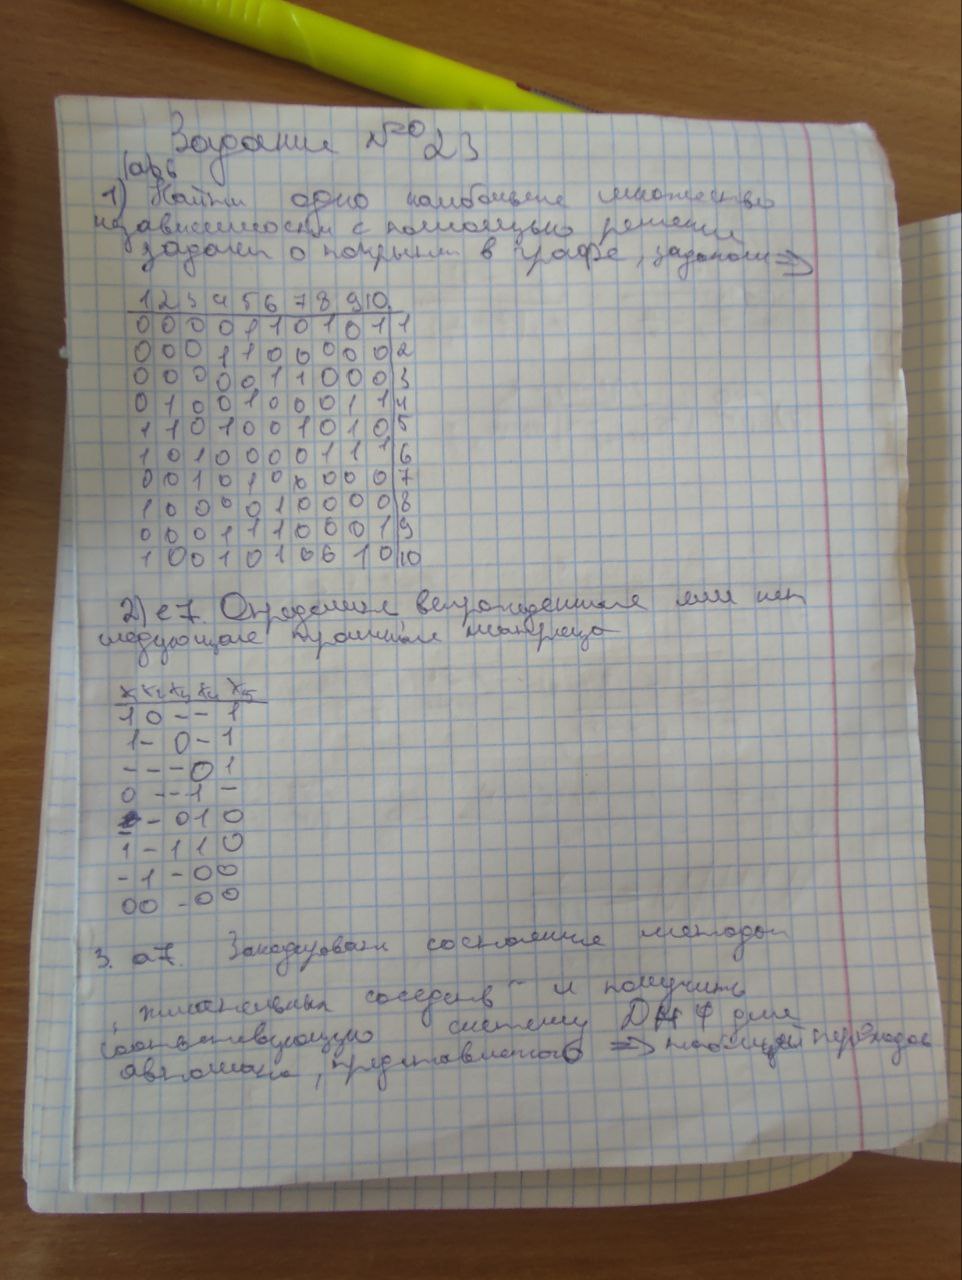 Задание № 23
1) Найти одно наибольшее множество
независимости с помощью решения
задачи о покрытии в графе, заданом =>
1 2 3 4 5 6 7 8 9 10
0 0 0 0 1 1 0 1 0 1 1
0 0 0 1 1 0 0 0 0 0 2
0 0 0 0 0 1 1 0 0 0 3
0 1 0 0 1 0 0 0 1 1 4
1 1 0 1 0 0 1 0 1 0 5
1 0 1 0 0 0 0 1 1 1 6
0 0 1 0 1 0 0 0 0 0 7
1 0 0 0 0 1 0 0 0 0 8
0 0 0 1 1 1 0 0 0 1 9
1 0 0 1 0 1 0 0 1 0 10
2) е7. Определить, вырожденная или нет
следующая троичная матрица
x₁ x₂ x₃ x₄ x₅
1 0 - - 1
1 - 0 - 1
- - - 0 1
0 - - 1 -
- 0 1 0
1 - 1 1 0
- 1 - 0 0
0 0 - 0 0
3. а7. Закодировать состояние методом
"желательных соседств" и получить
соответствующую систему ДНФ для
автомата, представленного => таблицей переходов